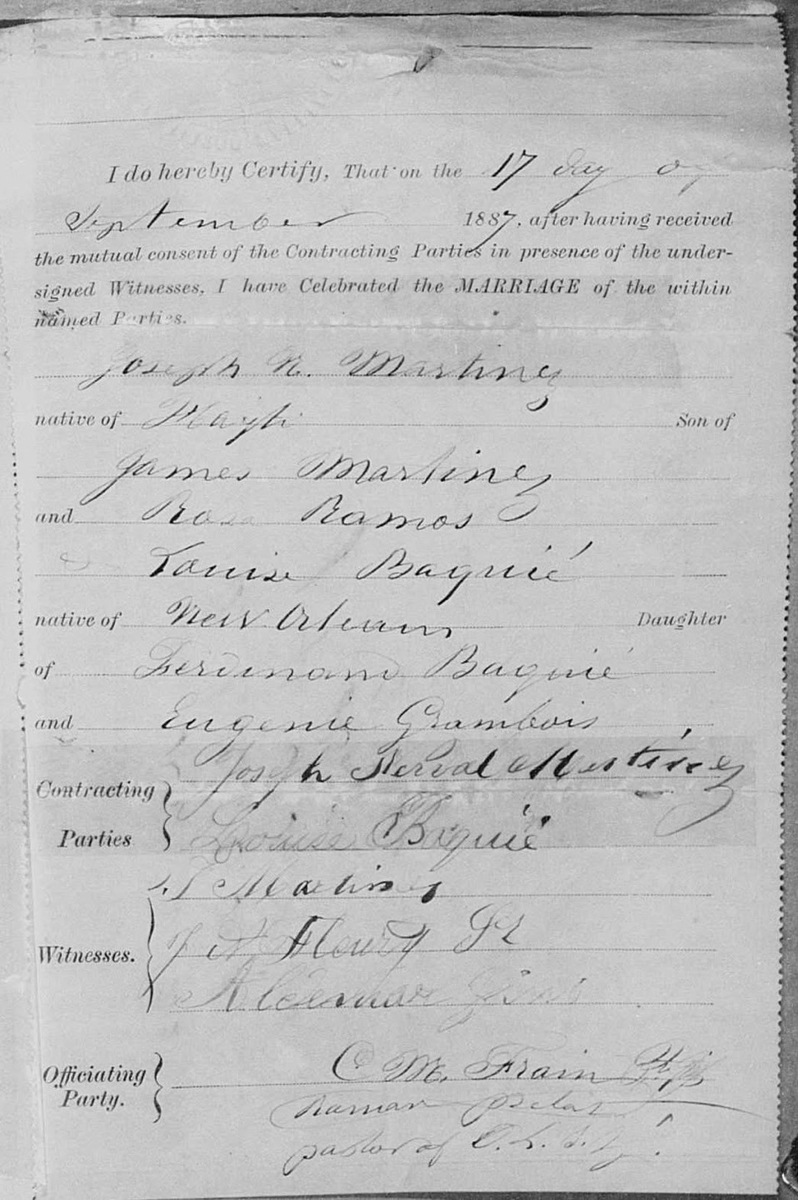 I do hereby Certify, That on the 17 day of
September 1887, after having received
the mutual consent of the Contracting Parties in presence of the under-
signed Witnesses, I have Celebrated the MARRIAGE of the within
named Parties.
Joseph N. Martinez
native of Hayti Son of
James Martinez
and Rosa Ramos
Louise Baquié
native of New Orleans Daughter
of Ferdinand Baquié
and Eugenie Grambois
Joseph Nerval Martinez
Contracting
Parties
Louise Baquié
Martinez
Witnesses.
Fleury Jr
Officiating
Party.
C. M. Frain
pastor of O. L.